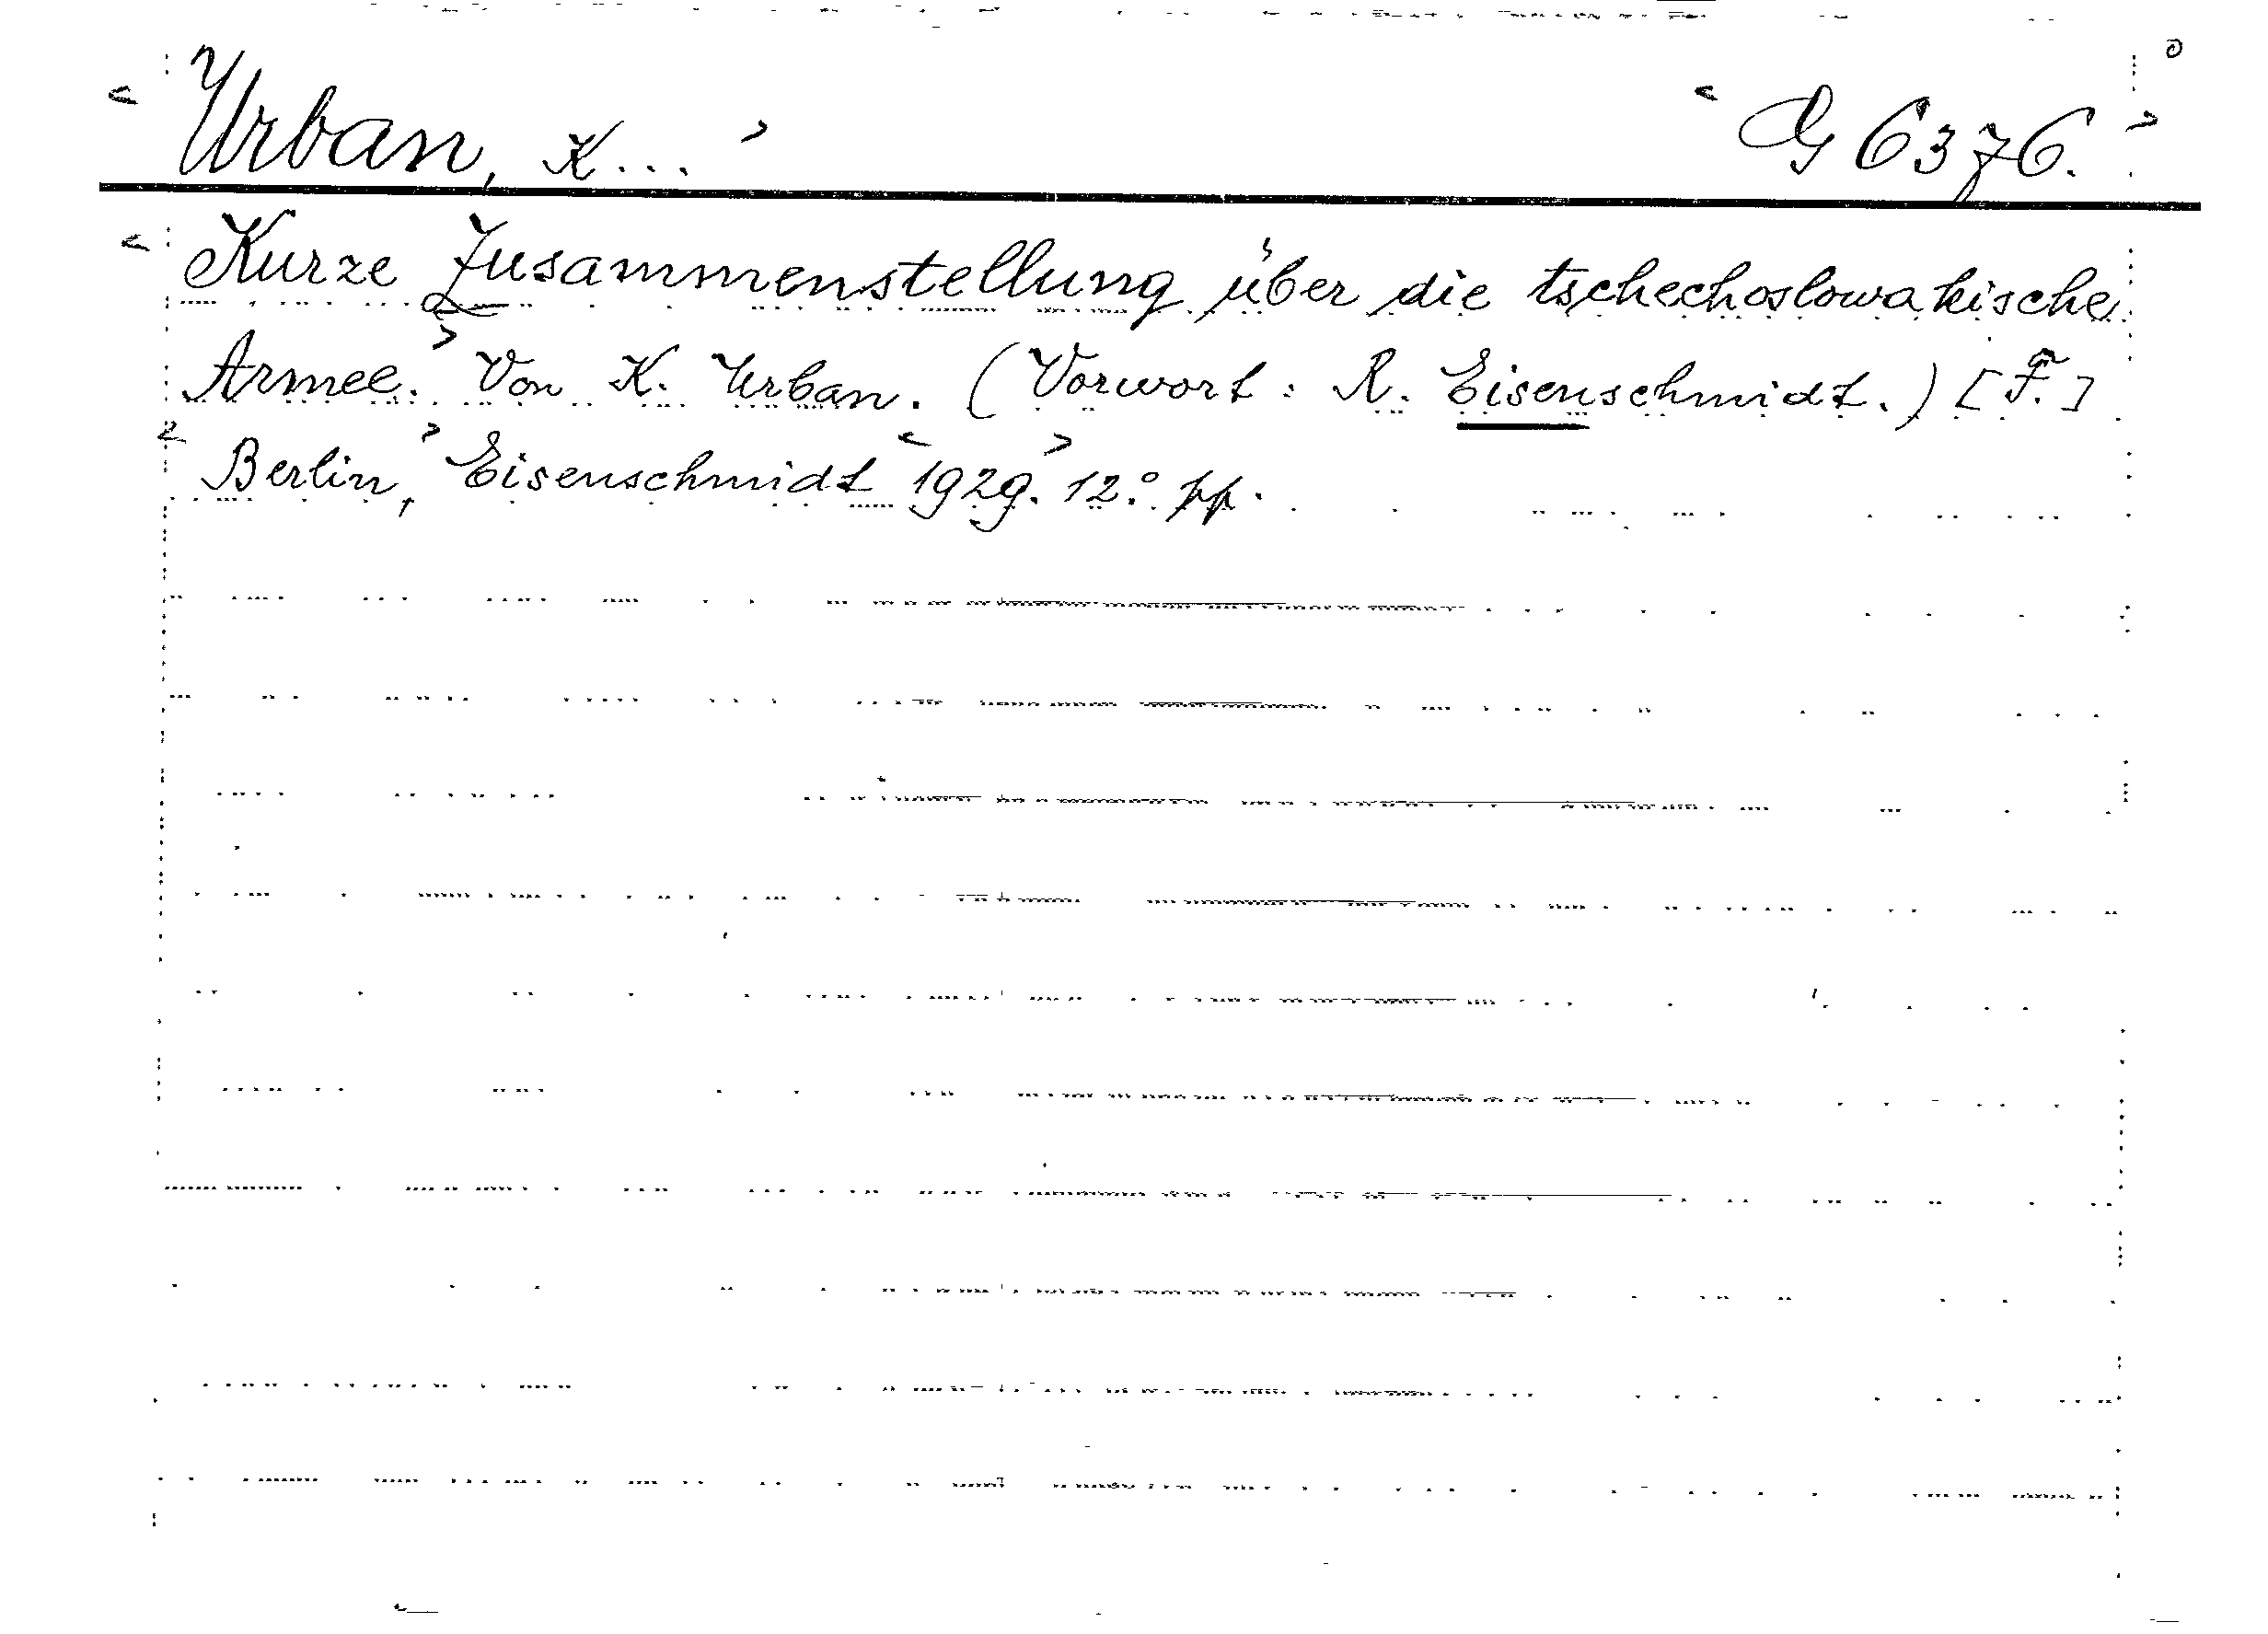 < Urban, K... > < G 6376. >
< Kurze Zusammenstellung über die tschechoslowakische
Armee. > Von K. Urban. (Vorwort: R. Eisenschmidt.) [F.]
< Berlin, > Eisenschmidt < 1929. > 12.° pp.